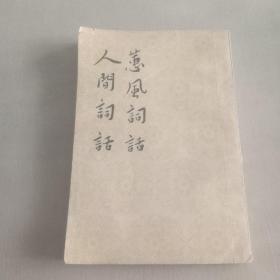 蕙風詞話
人間詞話